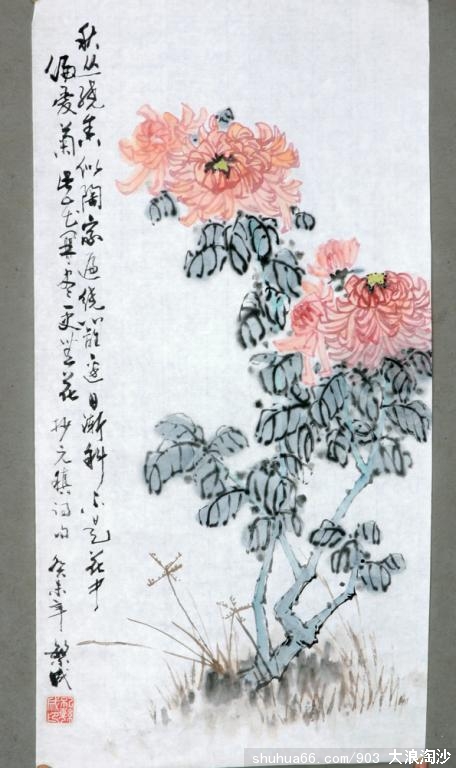 秋丛绕舍似陶家遍绕篱边日渐斜不是花中
偏爱菊此花开尽更無花 抄元稹诗句 癸未年 繁成
shuhua66.com/903 大浪淘沙